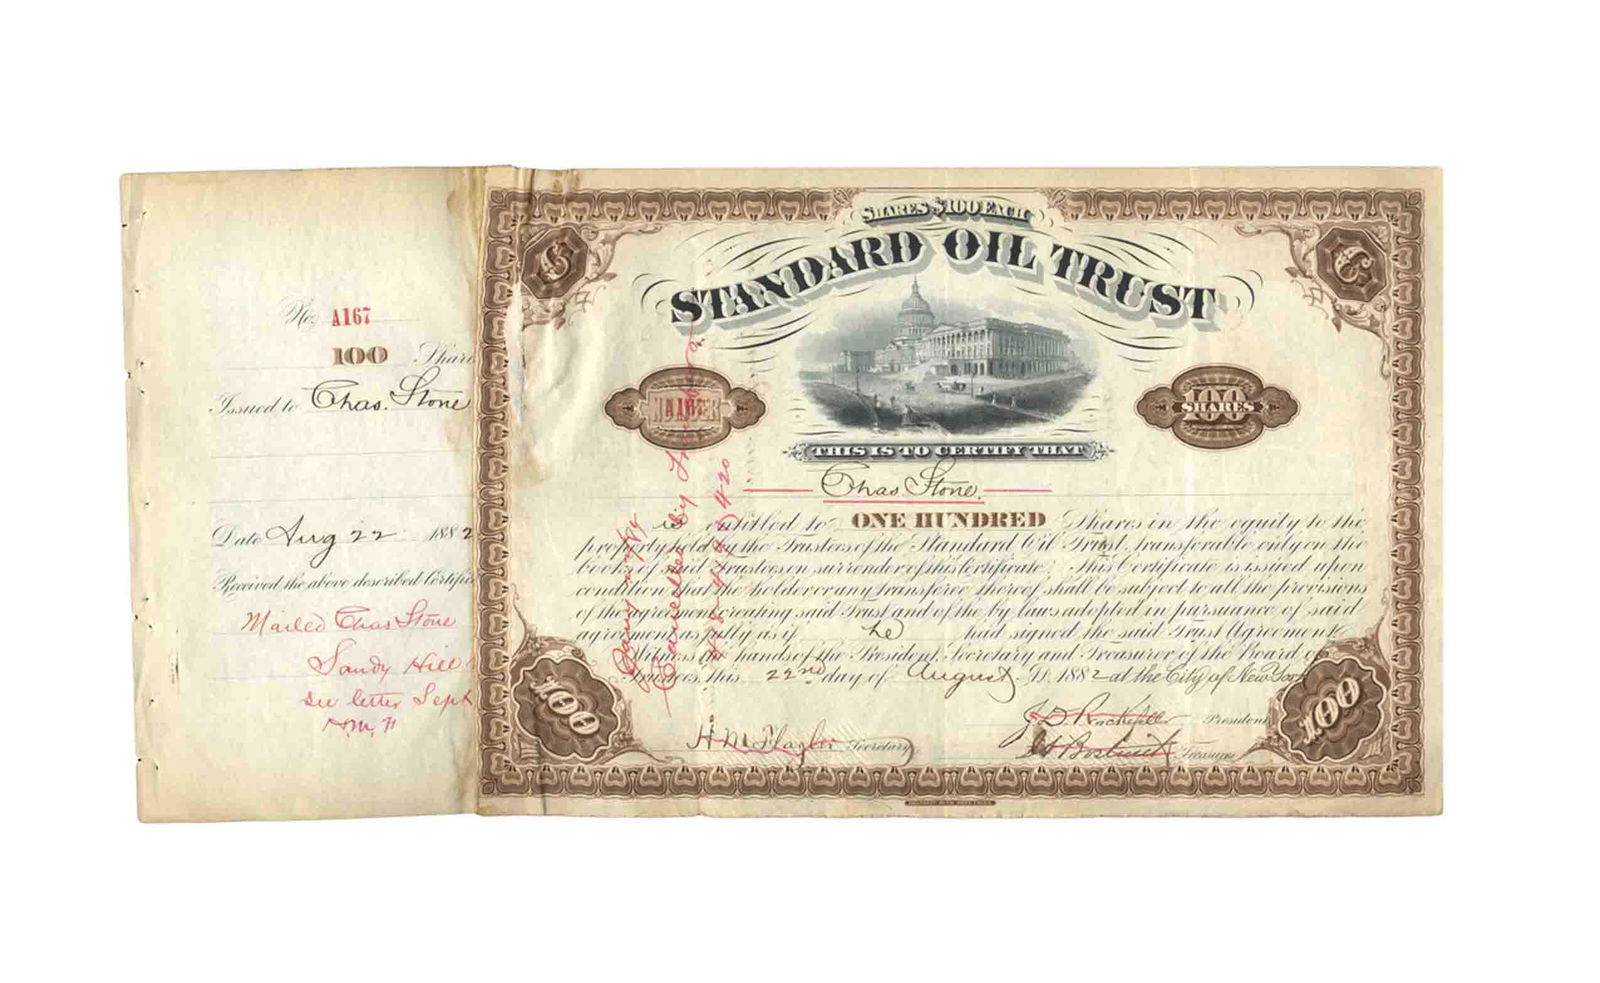 No. A167
100 Share
Issued to Chas. Stone
Date Aug 22 1882
Received the above described Certific
Mailed Chas Stone
Sandy Hill
see letter Sept
H.M.F.
SHARES $100 EACH
STANDARD OIL TRUST
NUMBER
A167
100
SHARES
THIS IS TO CERTIFY THAT
Chas Stone.
is entitled to ONE HUNDRED Shares in the equity to the
property held by the Trustees of the Standard Oil Trust, transferable only on the
books of said Trustees on surrender of this Certificate. This Certificate is issued upon
condition that the holder or any transferee thereof shall be subject to all the provisions
of the agreement creating said Trust and of the by-laws adopted in pursuance of said
agreement as fully as if he had signed the said Trust Agreement.
Witness the hands of the President, Secretary and Treasurer of the Board of
Trustees, this 22nd day of August A.D. 1882 at the City of New York
J.D. Rockefeller President
H M Flagler Secretary
Treasurer
$100
$100
Cancelled By